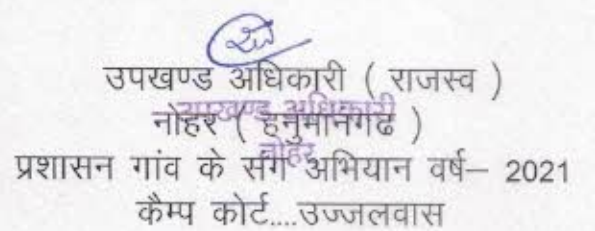 उपखण्ड अधिकारी ( राजस्व )
नोहर ( हनुमानगढ )
उपखण्ड अधिकारी
नोहर
प्रशासन गांव के संग अभियान वर्ष– 2021
कैम्प कोर्ट....उज्जलवास